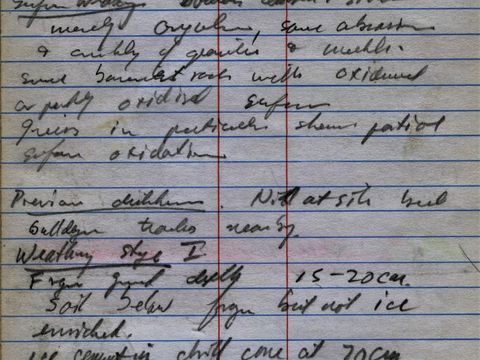 Surface
merely some abrasion
& of granite & marble.
some basement rocks with oxidised
or partly oxidised surface
Gneiss in particular shows patial
surface oxidation
Previous disturbance. Nil at site but
bulldozer tracks nearby
Weathering stage I
From ground 15-20cm.
Soil below but not ice
enriched.
ice cement in drill core at 70cm